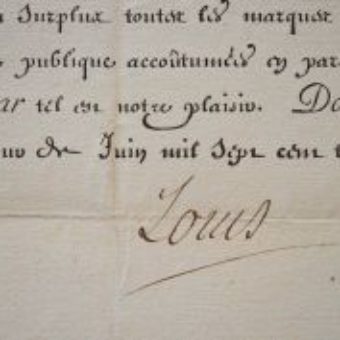 Surplux toutes les marques
publique accoûtumées en par
ar tel est notre plaisir. Do
de Juin mil Sept cent t
Louis